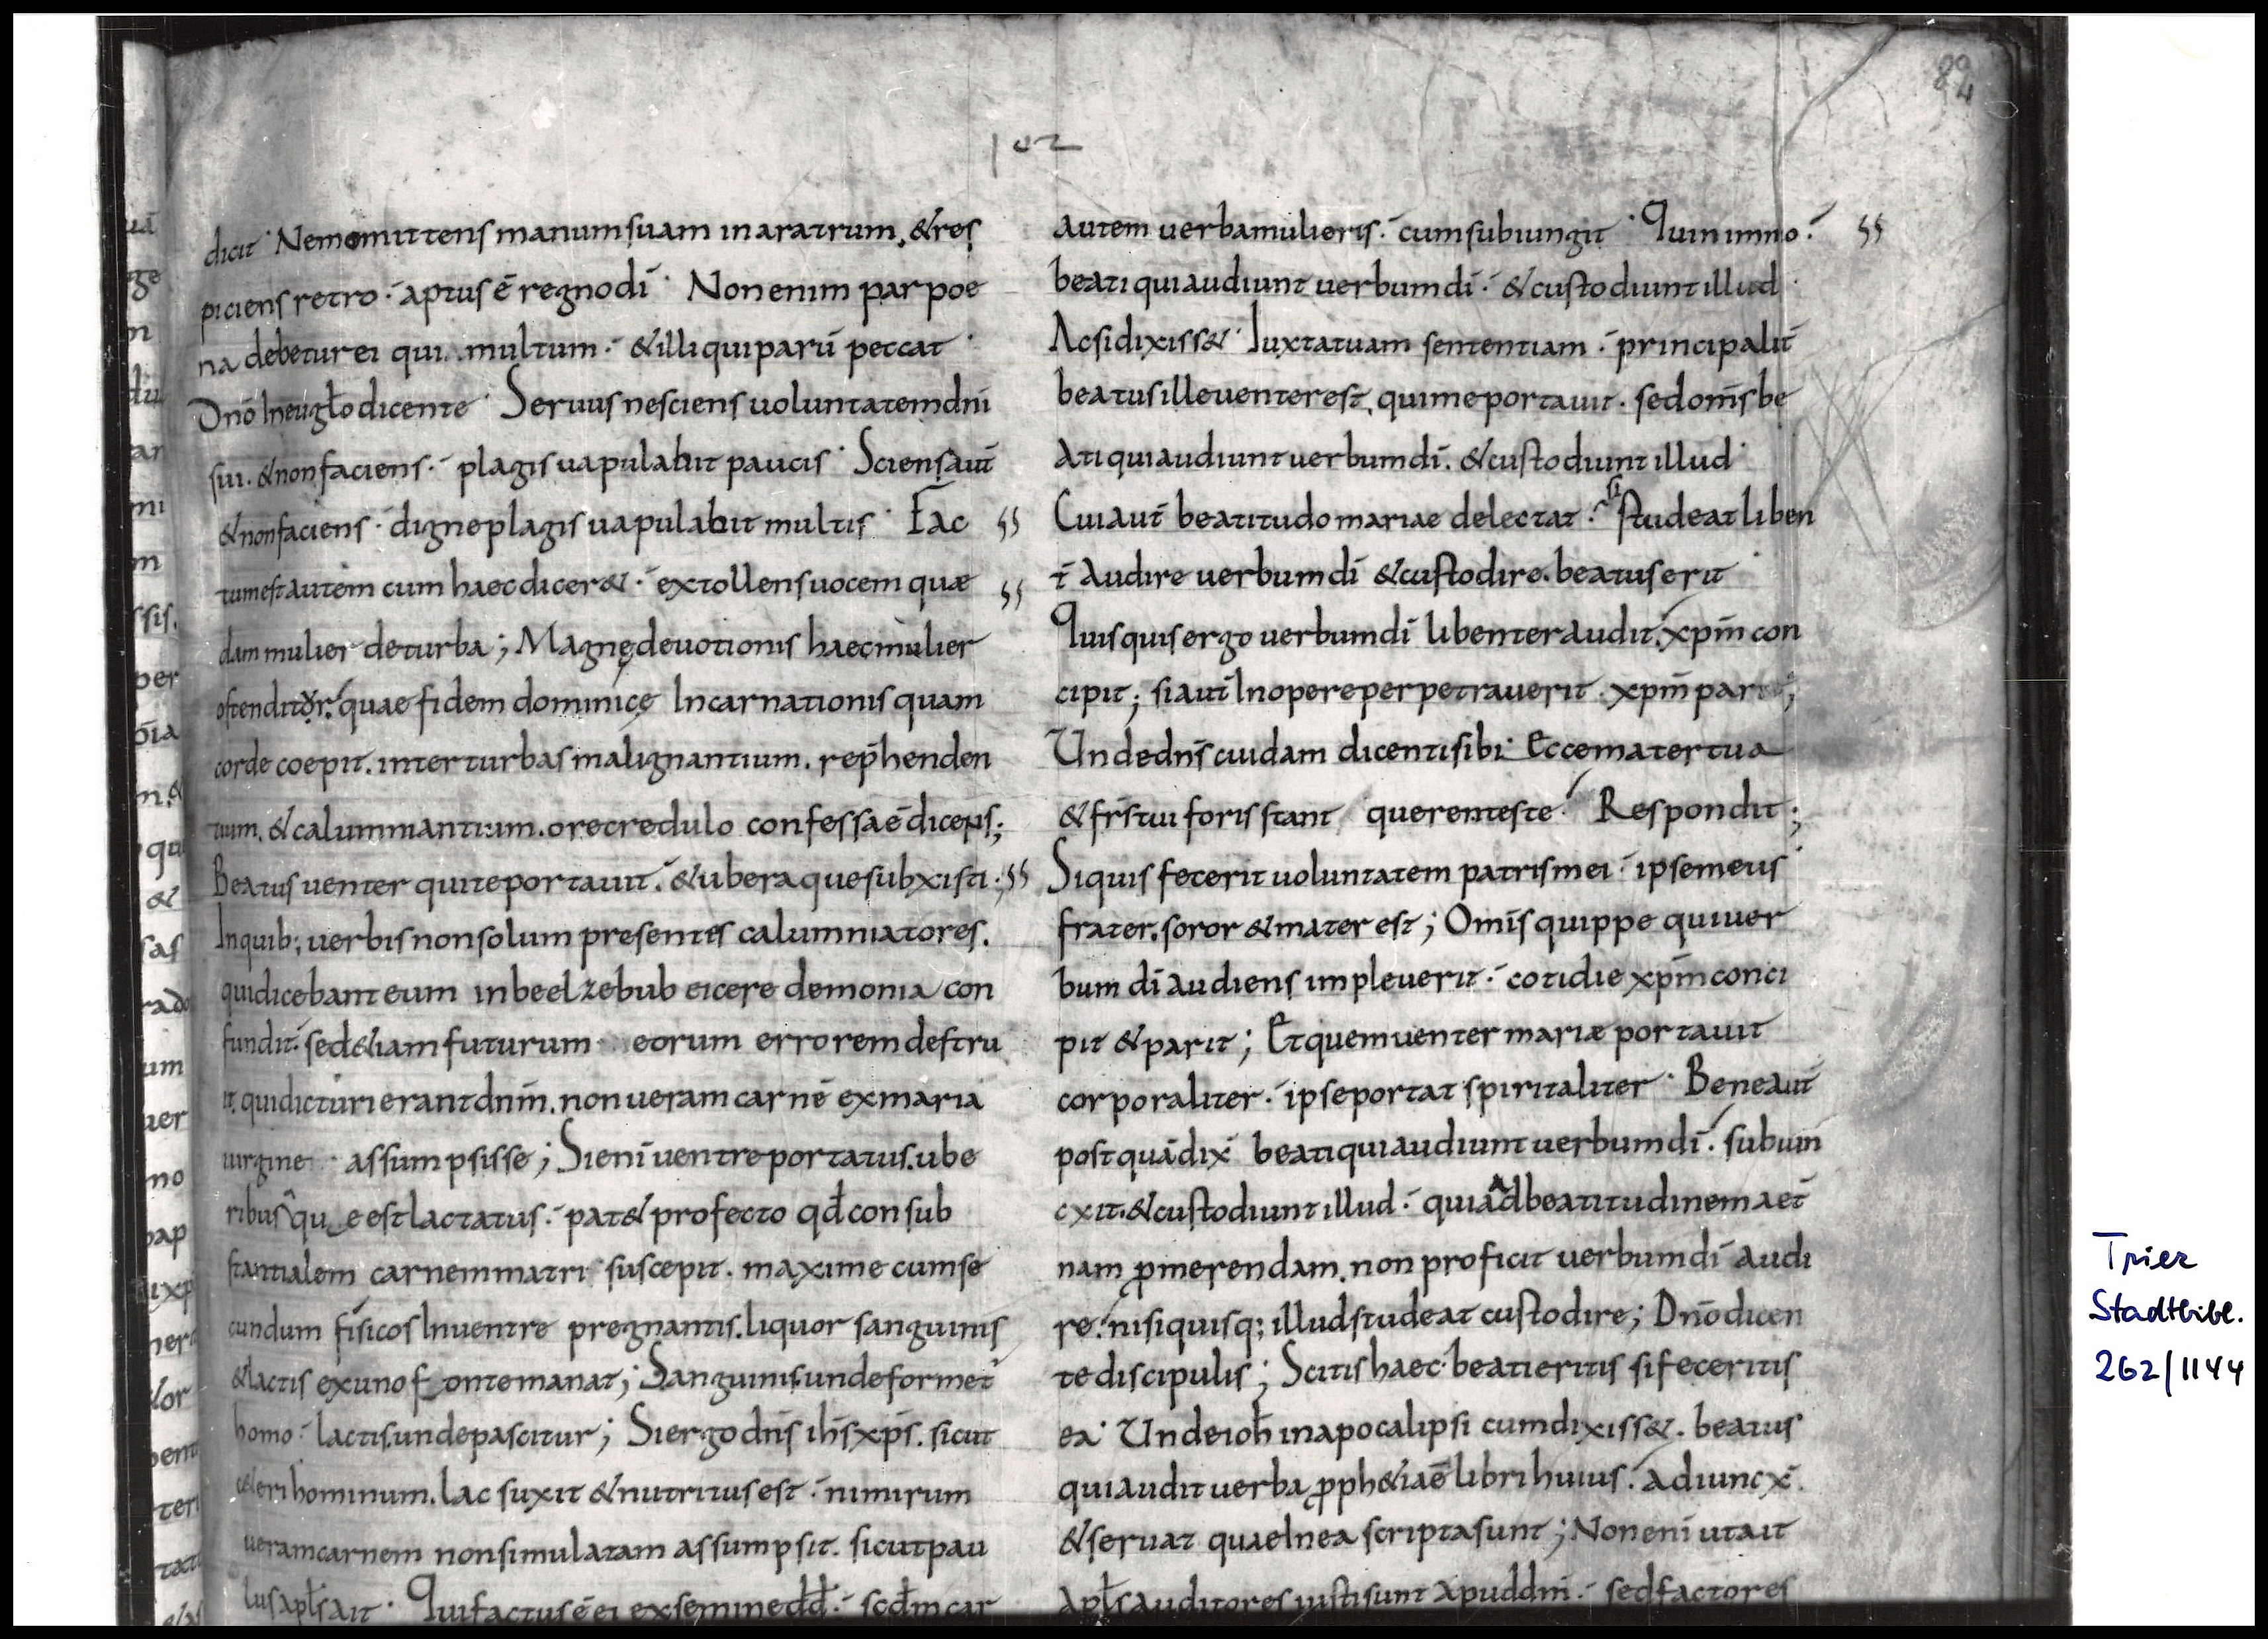 84
102
dicit · Nemo mittens manum suam in aratrum, & res
piciens retro · aptus ē regno dī · Non enim par poe
na debetur ei qui multum · & illi qui parū peccat ·
Dnō In eugl̄o dicente · Seruus nesciens uoluntatem dni
sui. & non faciens · plagis uapulabit paucis · Sciens aut̄
& non faciens · digne plagis uapulabit multis · Fac
tum est autem cum haec dicer& · extollens uocem quæ
dam mulier de turba ; Magnę deuotionis haec mulier
ostenditur · quae fidem dominicę Incarnationis quam
corde coepit. inter turbas malignantium. rep̄henden
tium. & calumniantium. ore credulo confessa ē dicens ;
Beatus uenter qui te portauit · & ubera que subxisti ;
In quib; uerbis non solum presentes calumniatores.
qui dicebant eum in beelzebub eicere demonia con
fundit · sed &iam futurum eorum errorem destru
it. qui dicturi erant dnm̄. non ueram carnē ex maria
uirgine assumpsisse ; Si eni uentre portatus. ube
ribus qu e est lactatus · pat& profecto qđ con sub
stantialem carnem matri suscepit. maxime cum se
cundum fisicos In uentre pregnantis. liquor sanguinis
& lactis ex uno fonte manat ; Sanguinis unde formet̄
homo · lactis. unde pascitur ; Si ergo dnīs ihs xp̄s. sicut
c&eri hominum. lac suxit & nutritus est · nimirum
ueram carnem non simulatam assumpsit. sicut pau
lus apl̄s ait · Qui factus ē ei ex semine dđ · scđm car
autem uerba mulieris · cum subiungit · Quin immo ·
beati qui audiunt uerbum dī · & custodiunt illud ·
Ac si dixiss& · Iuxta tuam sententiam · principalit̄
beatus ille uenter est, qui me portauit. sed om̄s be
ati qui audiunt uerbum dī. & custodiunt illud ·
Cui aut̄ beatitudo mariae delectat · si studeat liben
t̄ audire uerbum dī & custodire. beatus erit ·
Quisquis ergo uerbum dī libenter audit · xpm̄ con
cipit ; si aut̄ In opere perpetrauerit · xpm̄ parit ;
Unde dnīs cuidam dicenti sibi · Ecce mater tua
& frīs tui foris stant querentes te · Respondit ;
Si quis fecerit uoluntatem patris mei · ipse meus
frater. soror & mater est ; Omīs quippe qui uer
bum dī audiens impleuerit · cotidie xpm̄ conci
pit & parit ; Et quem uenter mariæ portauit
corporaliter · ipse portat spiritaliter · Bene aut̄
post quā dix̄ beati qui audiunt uerbum dī · subiun
cxit. & custodiunt illud · quia ad beatitudinem aet̄
nam p̱merendam. non proficit uerbum dī audi
re · nisi quisq; illud studeat custodire ; Dnō dicen
te discipulis ; Scitis haec · beati eritis si feceritis
ea · Unde ioh̄ in apocalipsi cum dixiss&. beatus
qui audit uerba p̱ph&iaē libri huius · adiuncx̄.
& seruat quae In ea scripta sunt ; Non eni ut ait
apl̄s auditores iusti sunt apud dm̄ · sed factores
Trier
Stadtbibl.
262/1144